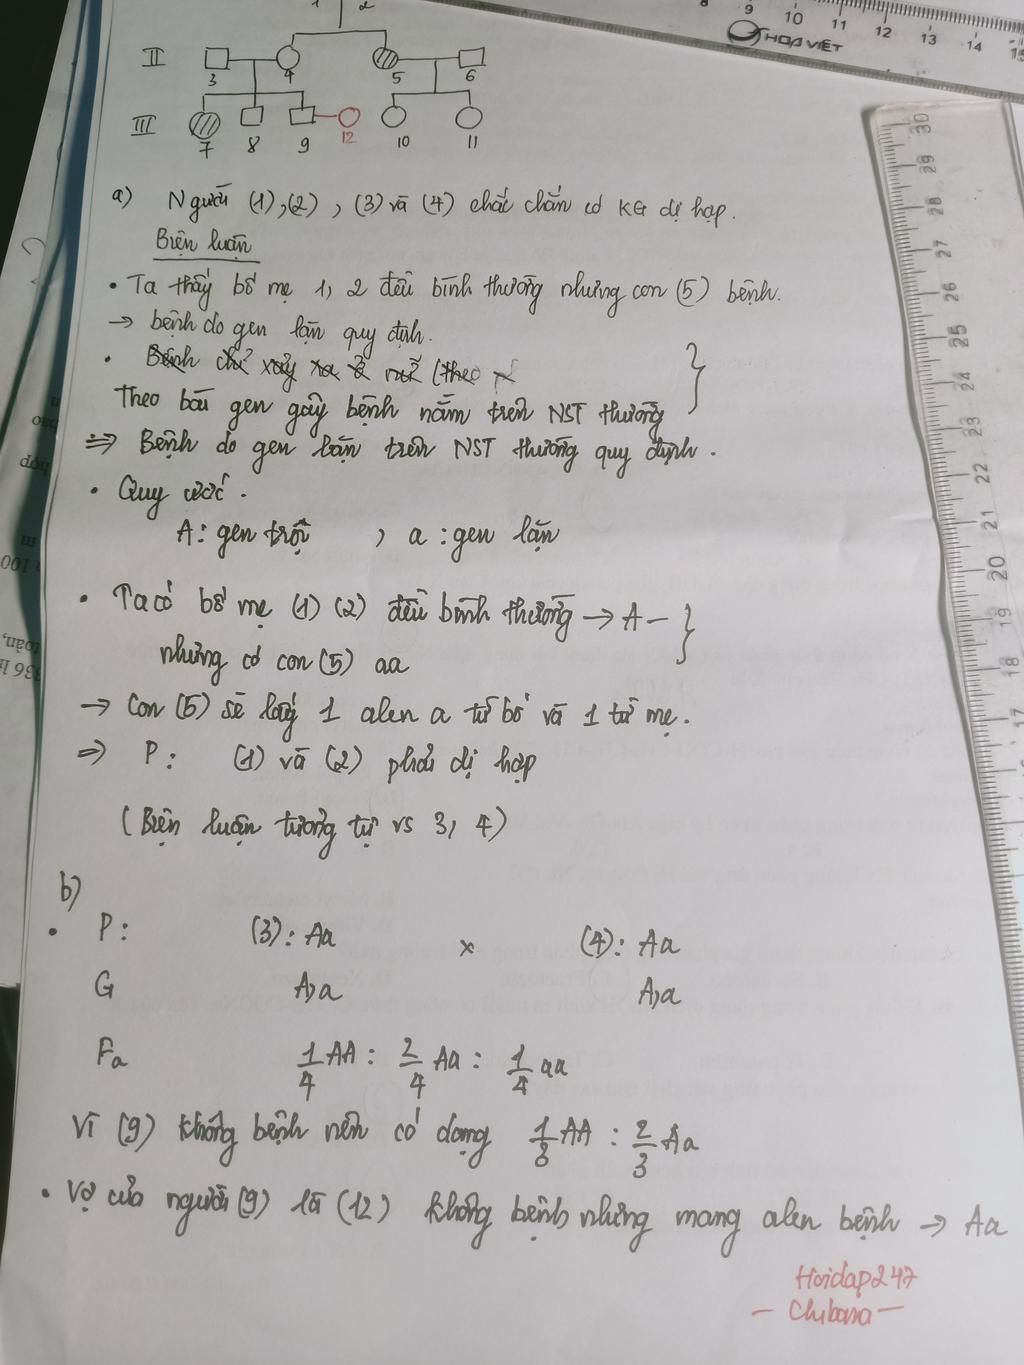 1 2
II
3 4 5 6
III
7 8 9 12 10 11
8 9 10 11 12 13 14 15
HOA VIỆT
30 29 28 27 26 25 24 23 22 21 20 19 18 17
a) Người (1), (2), (3) và (4) chắc chắn có KG dị hợp.
Biện luận
• Ta thấy bố mẹ 1, 2 đều bình thường nhưng con (5) bệnh.
→ bệnh do gen lặn quy định.
• Bệnh chỉ xảy ra ở nữ (theo
Theo bài gen gây bệnh nằm trên NST thường
⇒ Bệnh do gen lặn trên NST thường quy định.
• Quy ước.
A: gen trội , a: gen lặn
• Ta có bố mẹ (1) (2) đều bình thường → A-
nhưng có con (5) aa
→ Con (5) sẽ lấy 1 alen a từ bố và 1 từ mẹ.
⇒ P: (1) và (2) phải dị hợp
(Biện luận tương tự vs 3, 4)
b)
• P: (3): Aa x (4): Aa
G A,a A,a
Fa 1/4 AA : 2/4 Aa : 1/4 aa
Vì (9) không bệnh nên có dạng 1/3 AA : 2/3 Aa
• Vợ của người (9) là (12) không bệnh nhưng mang alen bệnh → Aa
Hoidap247
- Chibana -